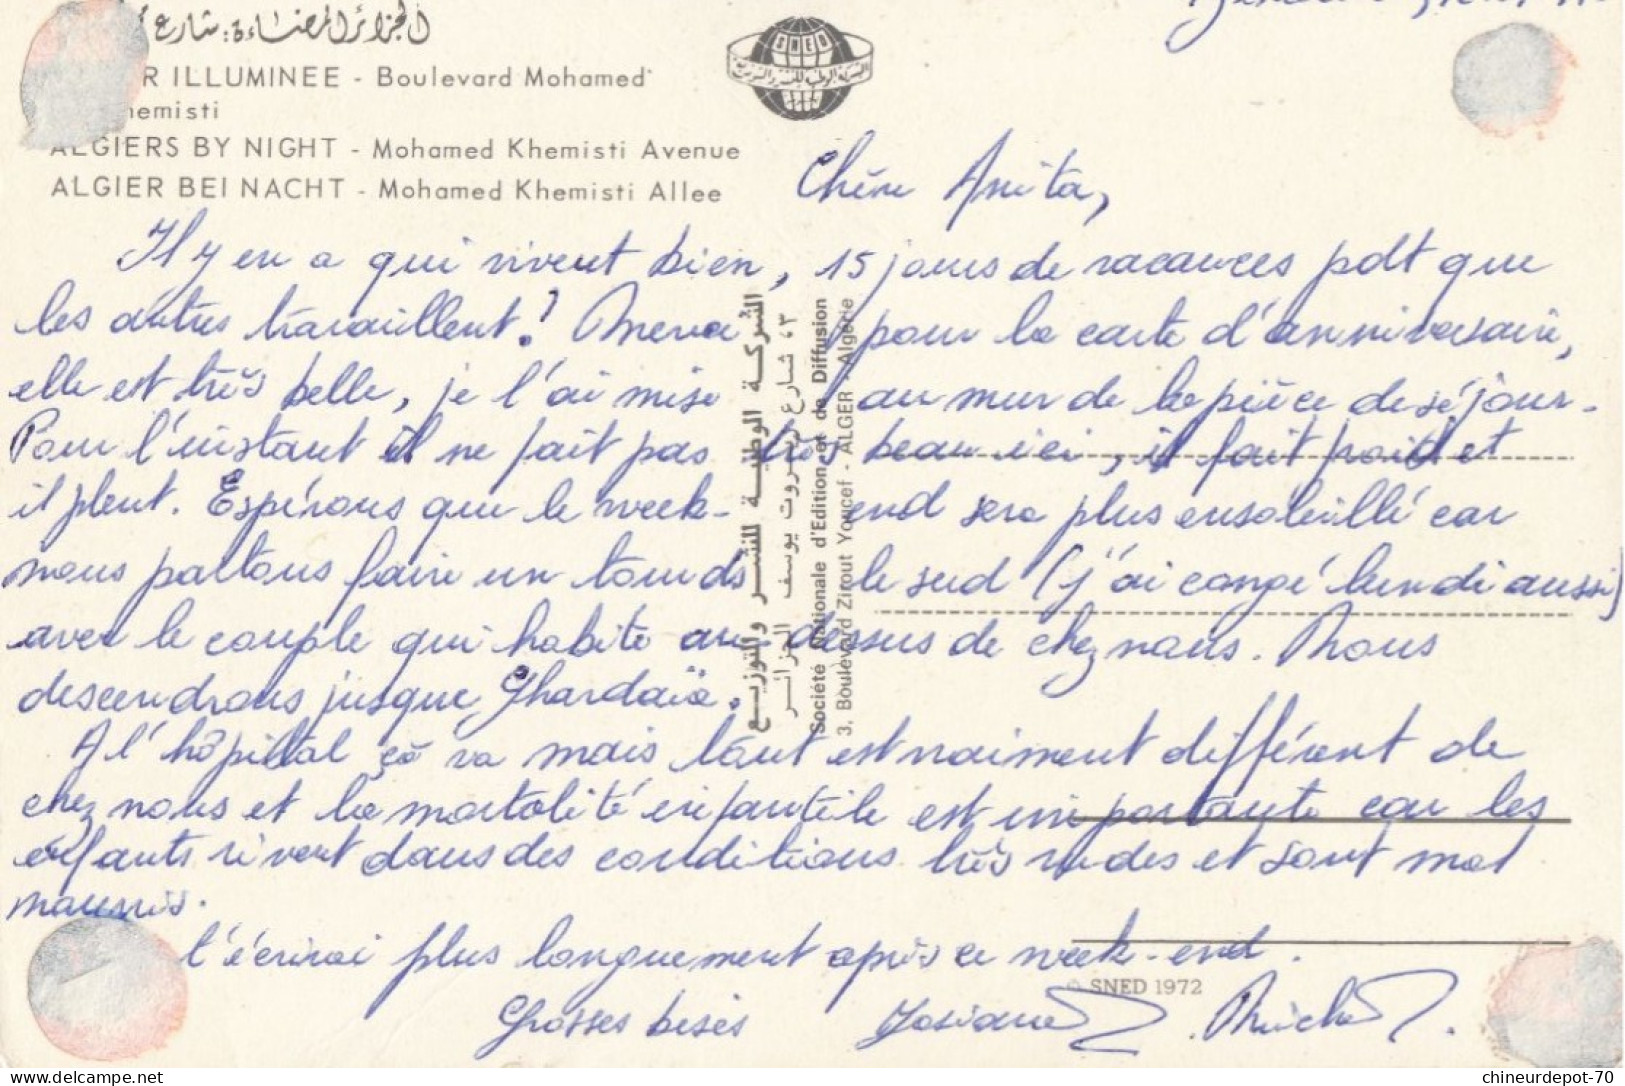 الجزائر المضاءة: شارع
R ILLUMINEE - Boulevard Mohamed
hemisti
ALGIERS BY NIGHT - Mohamed Khemisti Avenue
ALGIER BEI NACHT - Mohamed Khemisti Allee
SNED
Chère Anita,
Il y en a qui vivent bien, 15 jours de vacances pdt que
les autres travaillent! Merci pour la carte d'anniversaire,
elle est très belle, je l'ai mise au mur de la pièce de séjour.
Pour l'instant il ne fait pas très beau ici, il fait froid et
il pleut. Espérons que le week-end sera plus ensoleillé car
nous partons faire un tour ds le sud (j'ai congé lundi aussi)
avec le couple qui habite au-dessus de chez nous. Nous
descendrons jusque Ghardaïa.
A l'hôpital çà va mais tout est vraiment différent de
chez nous et la mortalité infantile est importante car les
enfants vivent dans des conditions très rudes et sont mal
nourris.
t'écrirai plus longuement après ce week-end.
Grosses bises Josiane Michel.
الشركة الوطنية للنشر والتوزيع
٣، شارع زيروت يوسف - الجزائر
Société Nationale d'Edition et de Diffusion
3, Boulevard Zirout Youcef - ALGER - Algérie
© SNED 1972
chineurdepot-70